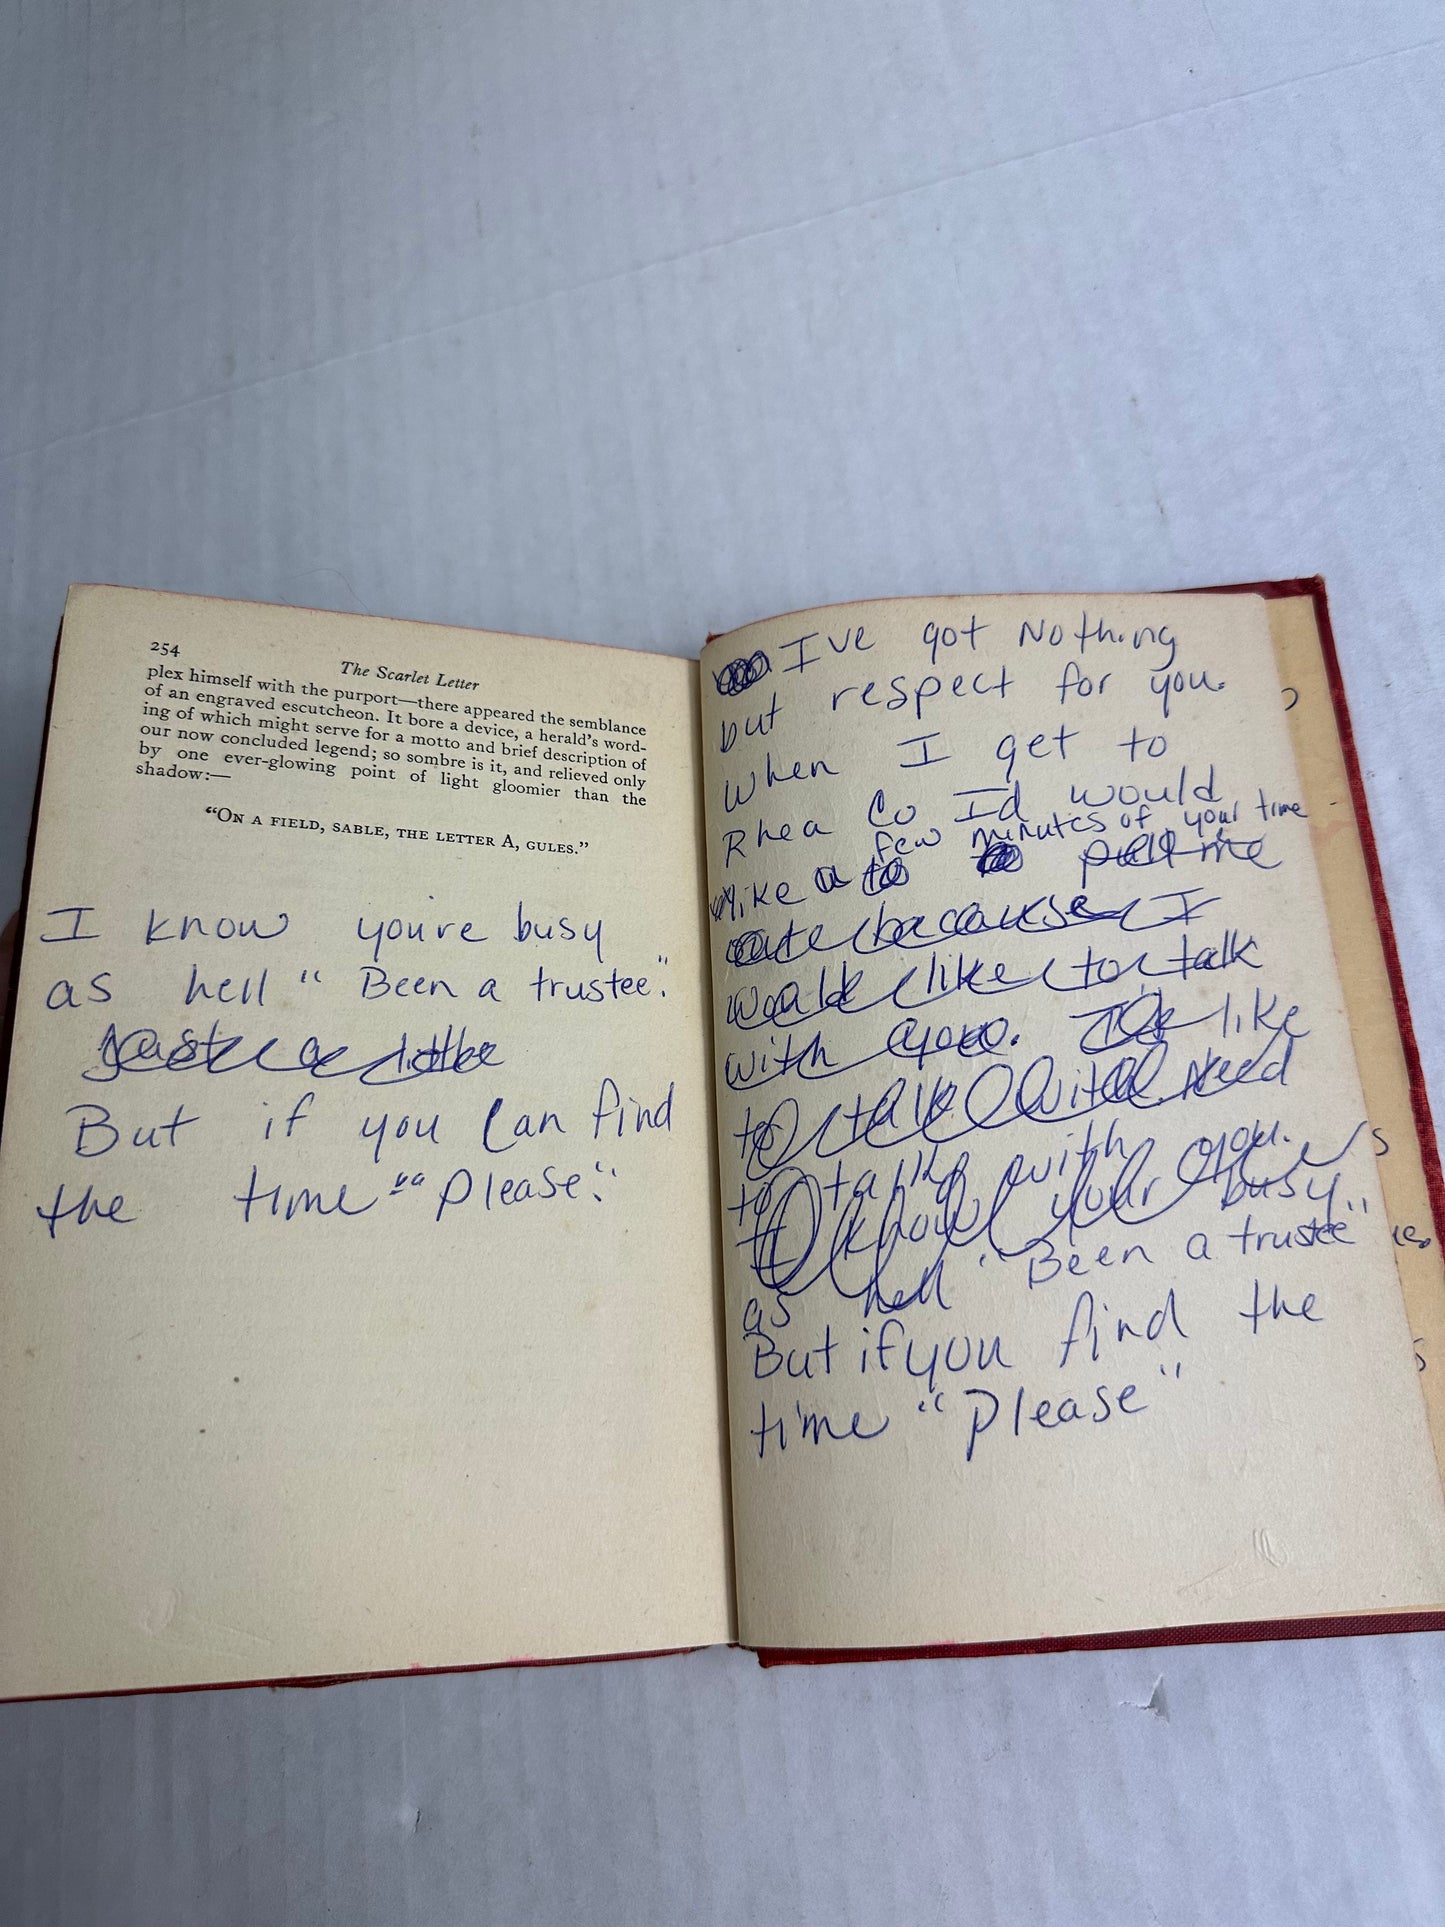 254
The Scarlet Letter
plex himself with the purport—there appeared the semblance
of an engraved escutcheon. It bore a device, a herald's word-
ing of which might serve for a motto and brief description of
our now concluded legend; so sombre is it, and relieved only
by one ever-glowing point of light gloomier than the
shadow:—
“ON A FIELD, SABLE, THE LETTER A, GULES.”
I know you're busy
as hell “Been a trustee.”
But if you can find
the time “Please.”
I've got Nothing
but respect for you.
When I get to
Rhea Co I'd would
few minutes of your time
like a to pull me
because I
would like to talk
with you. like
to talk with need
to talk with you.
I know your busy
as hell “Been a trustee”
But if you find the
time “Please”